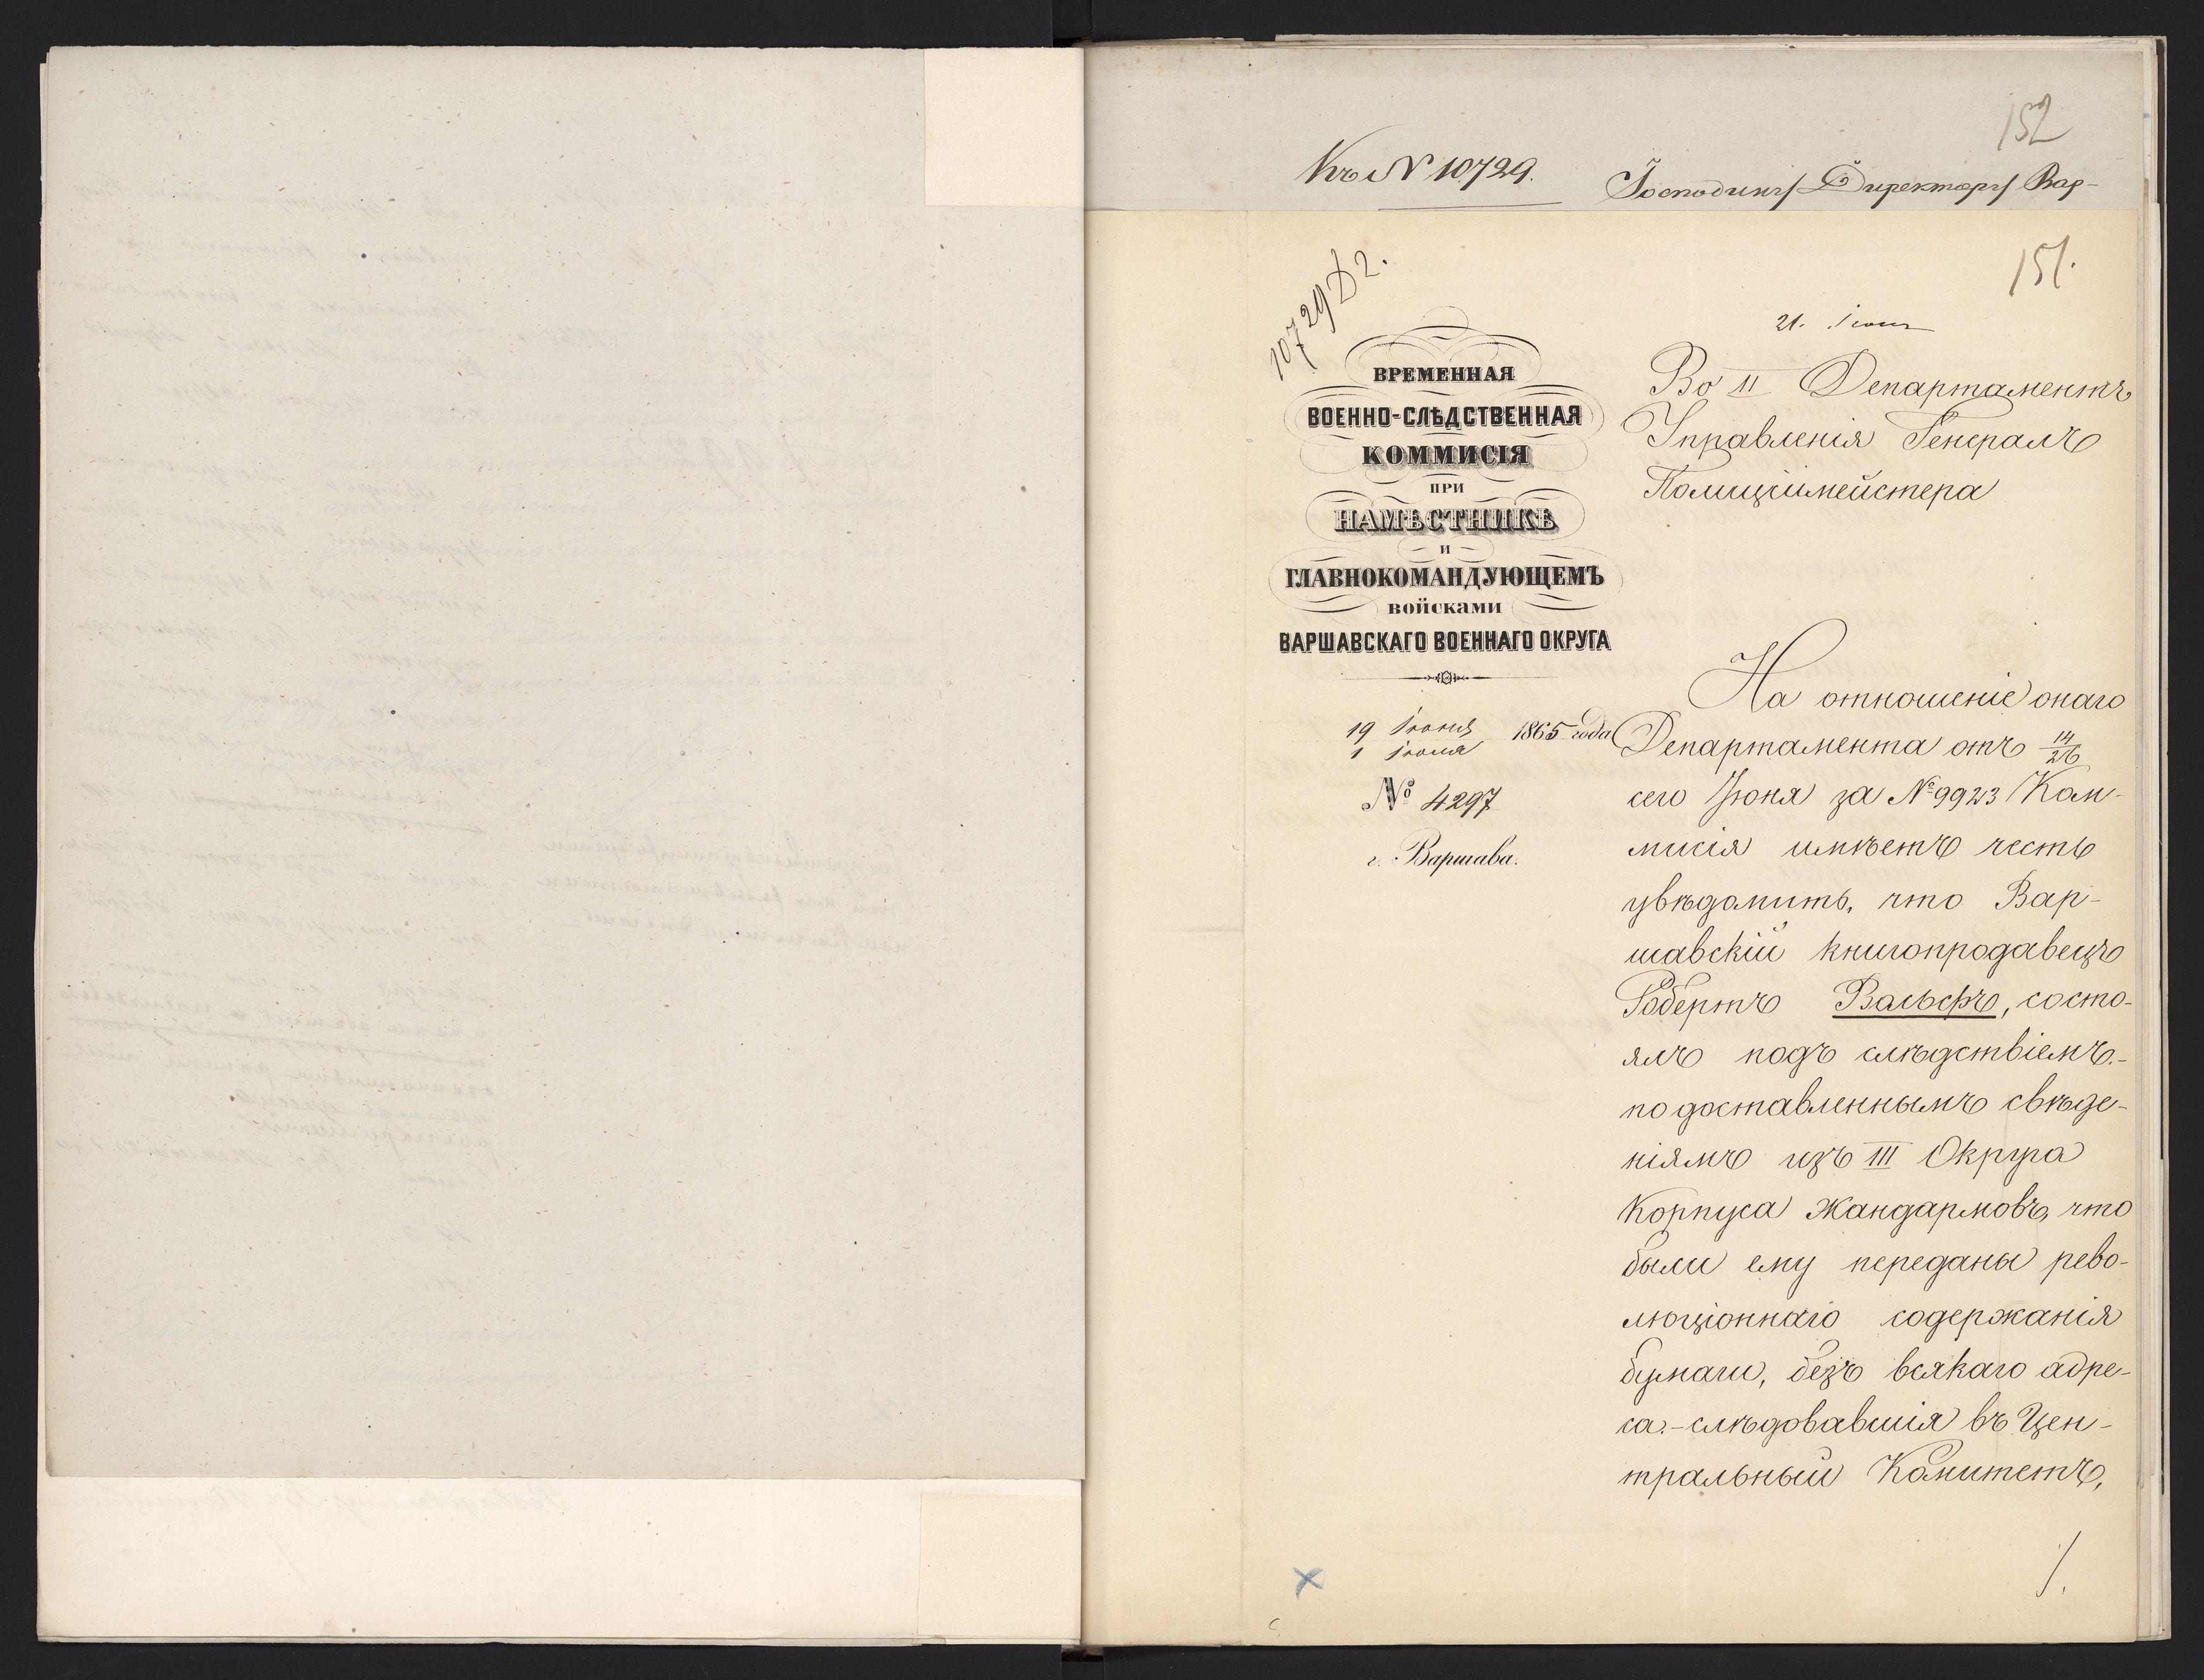 152
Къ № 10729.
Господину Директору Вар-
151.
10729 Д 2.
21. Іюня
ВРЕМЕННАЯ
ВОЕННО-СЛѢДСТВЕННАЯ
КОММИСІЯ
ПРИ
НАМѢСТНИКѢ
И
ГЛАВНОКОМАНДУЮЩЕМЪ
ВОЙСКАМИ
ВАРШАВСКАГО ВОЕННАГО ОКРУГА
19 Іюня
1 Іюля
1865 года
№ 4297
г. Варшава.
Во II Департаментъ
Управленія Генералъ
Полиціймейстера
На отношеніе онаго
Департамента отъ 14/26
сего Іюня за № 9923 Ком-
мисія имѣетъ честь
увѣдомить, что Вар-
шавскій книгопродавецъ
Робертъ Вольфъ, состо-
ялъ подъ слѣдствіемъ.-
по доставленнымъ свѣде-
ніямъ изъ III Округа
Корпуса Жандармовъ, что
были ему переданы рево-
люціоннаго содержанія
бумаги, безъ всякаго адре-
са.-слѣдовавшія въ Цен-
тральный Комитетъ,